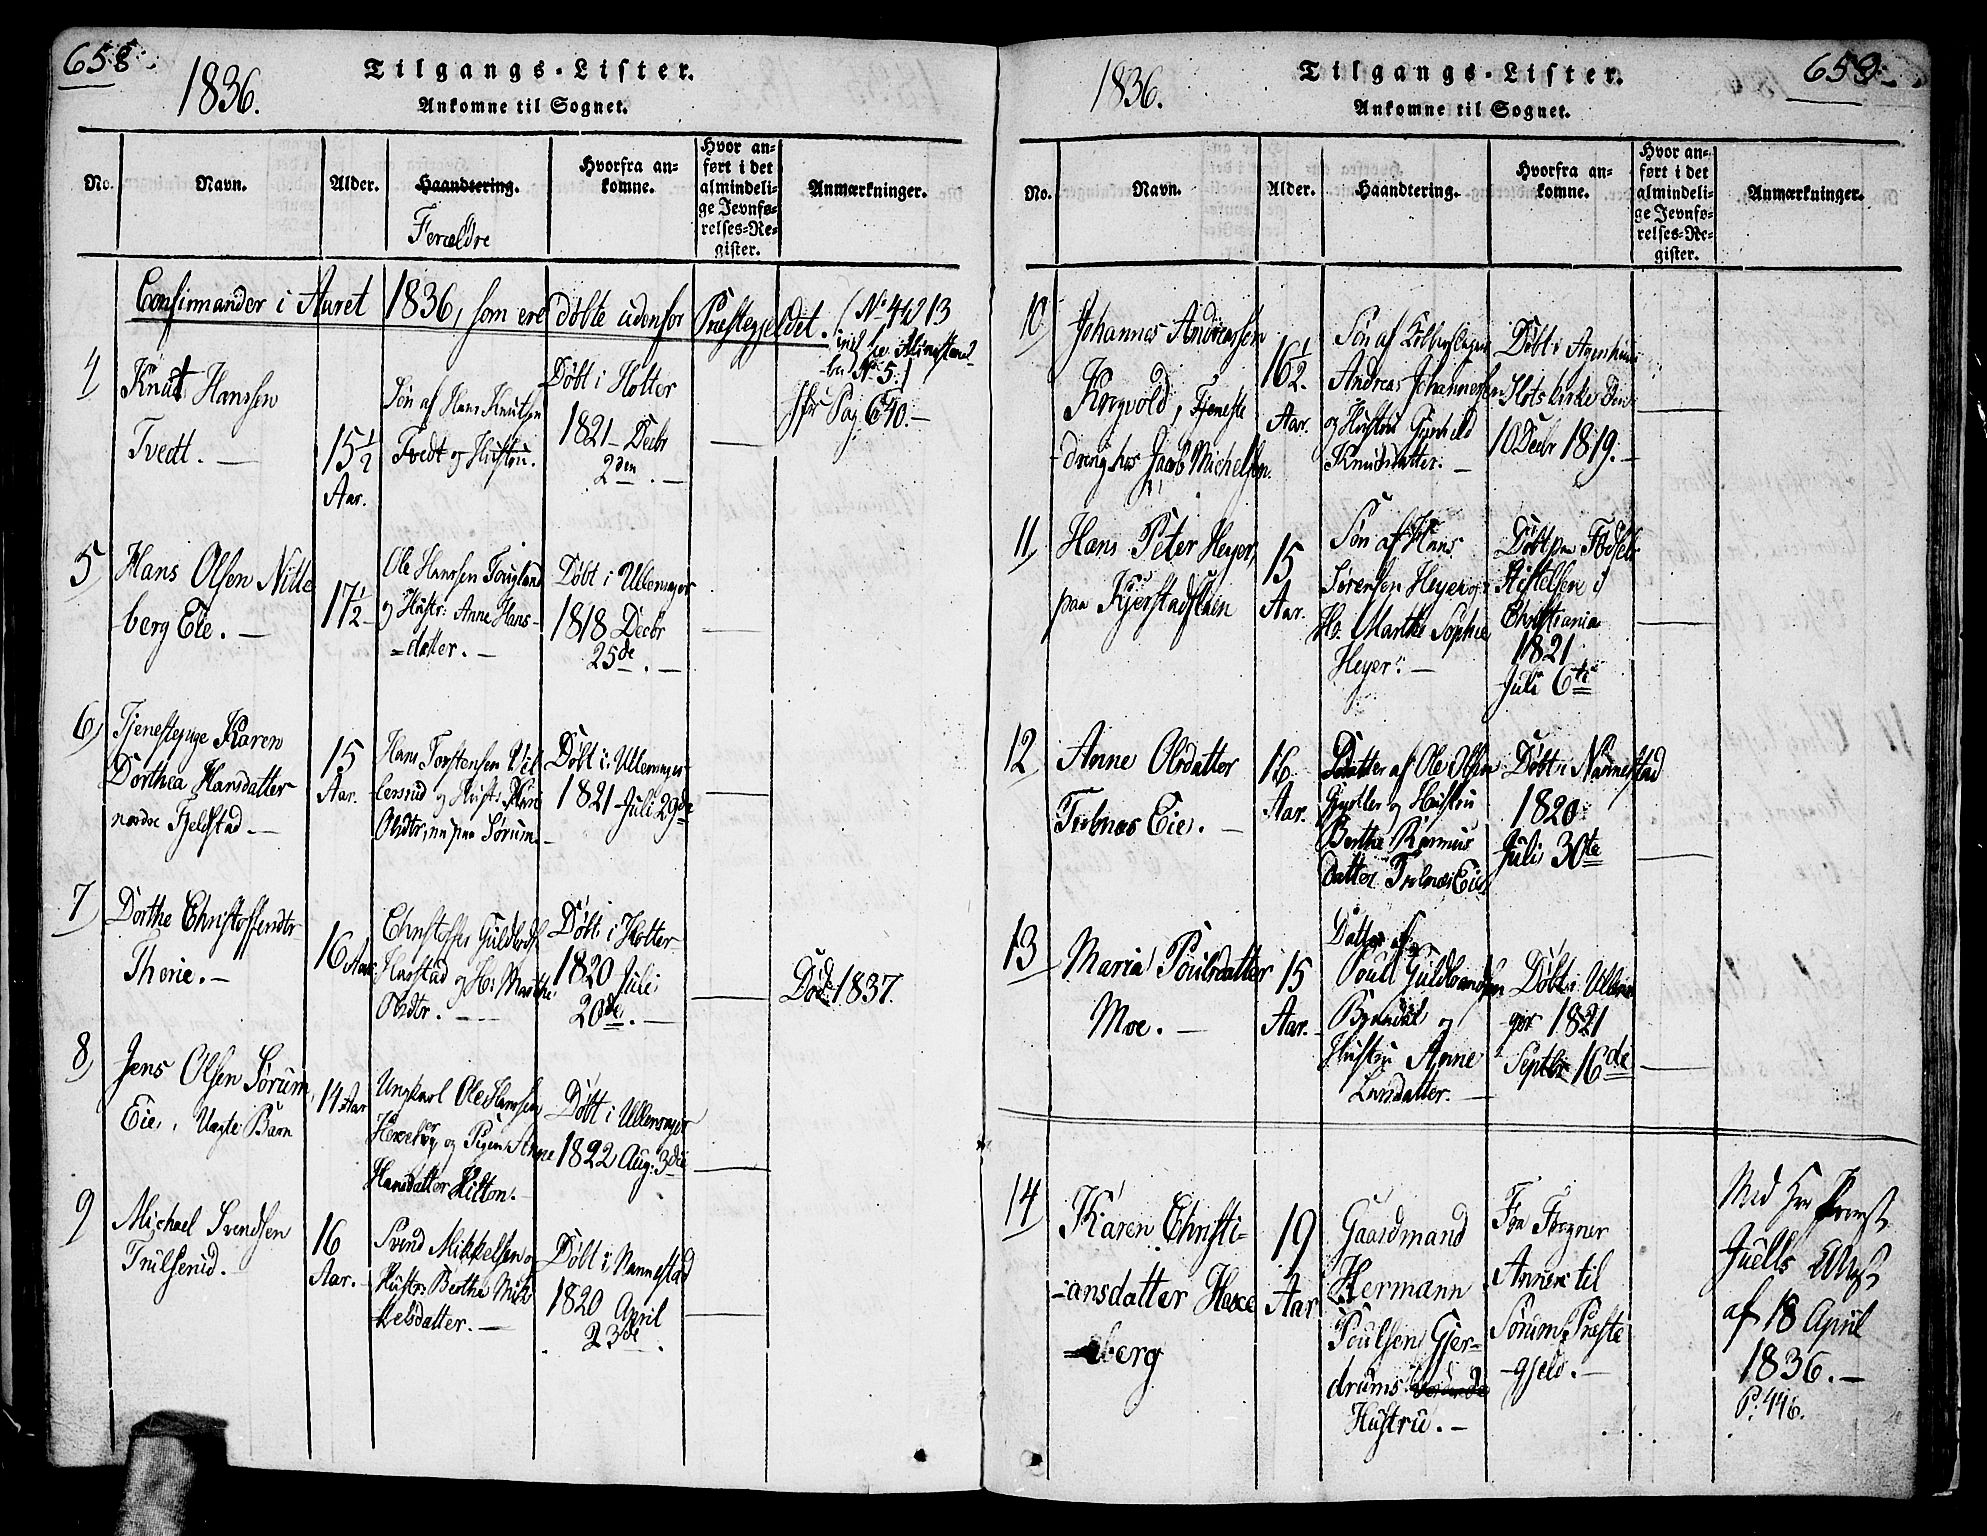 658.
1836.
Tilgangs-Lister.
Ankomne til Sognet.
No.
Navn.
Alder.
Haandtering.
Forældre
Hvorfra an-
komne.
Hvor an-
ført i det
almindeli-
ge Jevnfø-
relses-Re-
gister.
Anmærkninger.
Confirmander i Aaret 1836, som ere døbte udenfor Præstegjeldet. (No 4 til 13
No 5.)
4)
Knut Hanssen
Tvedt. —
15 1/2
Aar.
Søn af Hans Knutsen
Tvedt og Hustru.
Døbt i Holter
1821 - Decbr
2den. —
Pag 640. —
5)
Hans Olsen Nitte
berg Eie. —
17 1/2
Ole Hanssen
og Hustr: Anne Hans-
=datter. —
Døbt i Ullensager
1818 Decbr
25de. —
6)
Tjenestepige Karen
Dorthea Hansdatter
nordre Fjeldstad —
15
Aar.
Hans Torstensen
og Hust: Kari
Olsdtr, nu paa Sørum. —
Døbt i Ullensager
1821 - Juli 29de
7)
Dorthe Christoffersdtr
Thorie. —
16 Aar
Christoffer Guldbrds.
og H: Marthe
Olsdtr. —
Døbt i Holter
1820 Juli
20de. —
Død 1837.
8)
Jens Olsen Sørum,
Eie, Uægte Barn
14 Aar
Ungkarl Ole Hanssen
Hexeberg og Pigen Anne
Hansdatter Hilton. —
Døbt i Ullensager
1822 Aug: 3die
9)
Michael Svendsen
Trulserud.
16
Aar. —
Svend Mikkelsen og
Hustr: Berthe Mik
kelsdatter. —
Døbt i Nannestad
1820 April
23de.
659.
1836.
Tilgangs-Lister.
Ankomne til Sognet.
No.
Navn.
Alder.
Haandtering.
Hvorfra an-
komne.
Hvor an-
ført i det
almindeli-
ge Jevnfø-
relses-Re-
gister.
Anmærkninger.
10)
Johannes Andreassen
Kogvold, Tjeneste
dreng hos Jacob Michelsen.
16 1/2
Aar.
Søn af
Andreas Johannessen
og Hustru Gunhild
Knudsdatter. —
Døbt i Agershuus
Slots kirke den
10 Decbr 1819. —
11)
Hans Peter Heyer,
paa Kjerstadsteen
15
Aar.
Søn af Hans
Sørensen Heyer og
H: Marthe Sophie
Heyer: —
Døbt paa Fødsels
Stiftelsen i
Christiania
1821
Juli 6te
12)
Anne Olsdatter
Tulnæs Eie. —
16
Aar.
Datter af Ole Olsen
Gjestler og Hustru
Berthe Rasmus
datter Tulnæs Eie
Døbt i Nannestad
1820
Juli 30te
13)
Maria Poulsdatter
Moe. —
15
Aar. —
Datter af
Poul Guldbrandsen
og
Hustru Anne
Larsdatter. —
Døbt i Ullensa
ger 1821
Septbr 16de
14)
Karen Christi-
-ansdatter Hexe
berg
19
Aar
Gaardmand
Hermann
Poulsen Gjer-
drums
Hustru. —
Fra Frogner
Annex til
Sørums Præste
-gjeld. —
Med Hr Provst
Juells Attest
af 18 April
1836. —
P: 446.